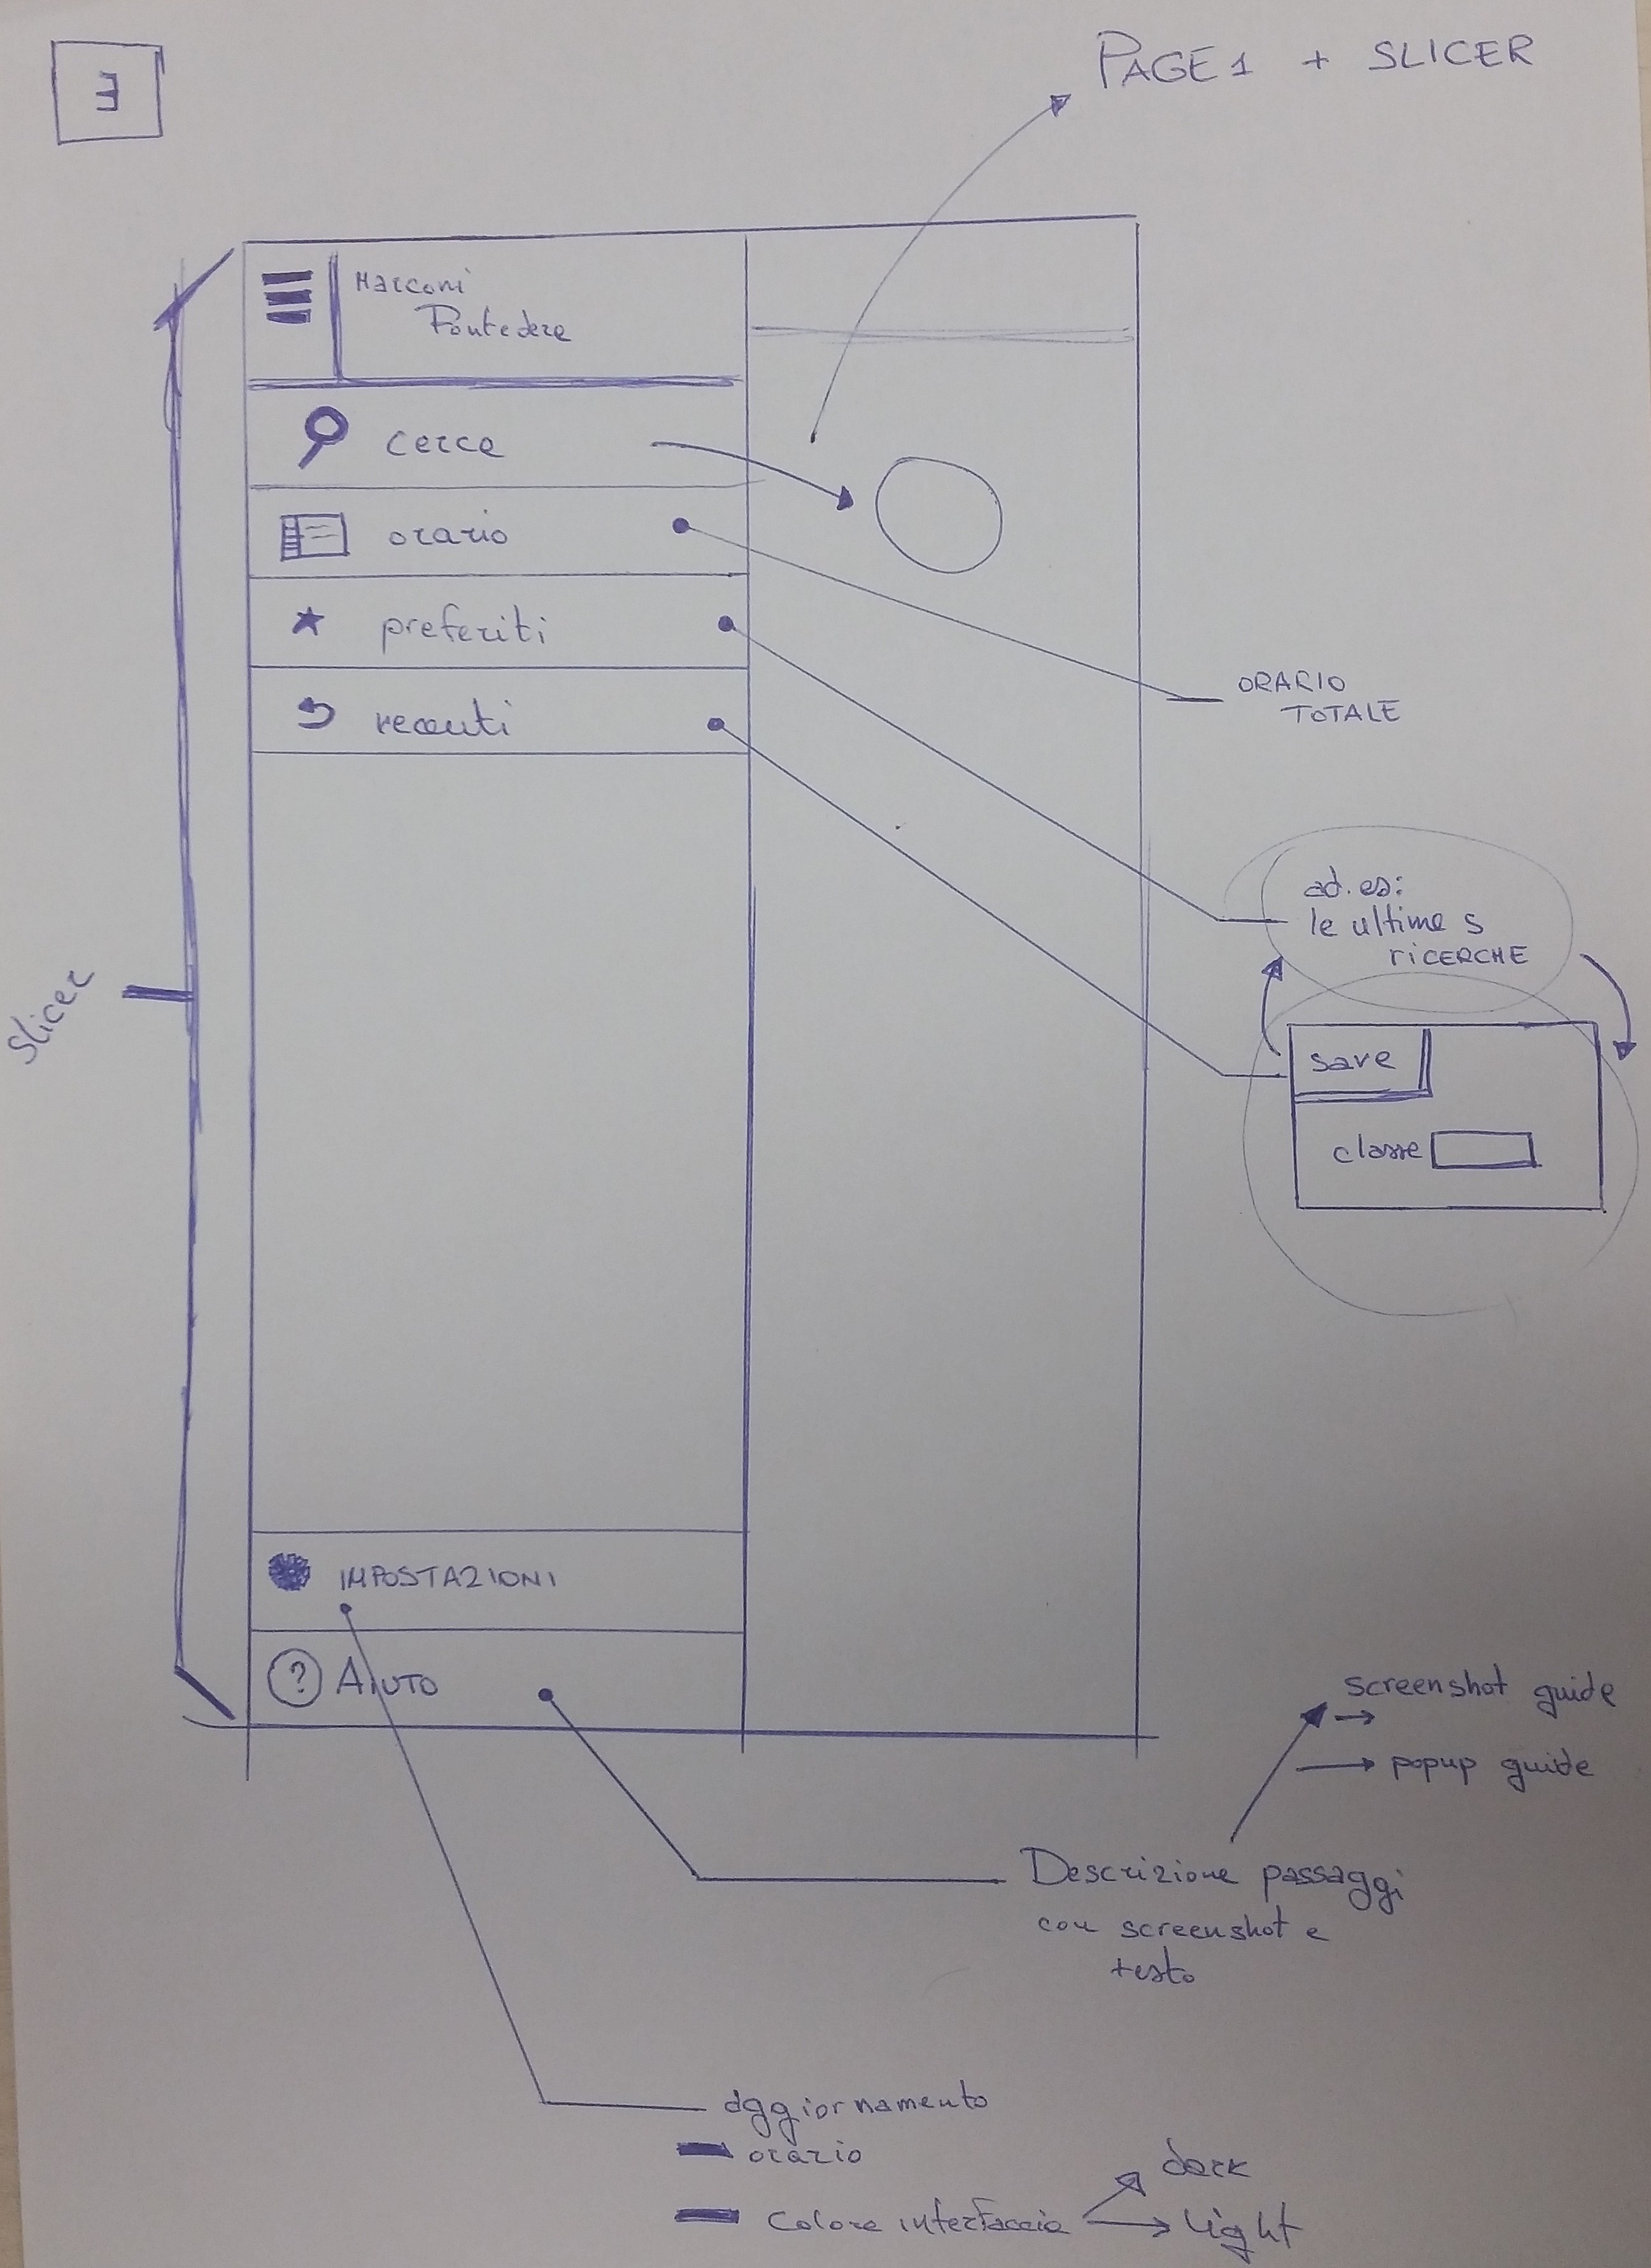 3
PAGE 1 + SLICER
Marconi
Pontedera
cerca
orario
preferiti
recenti
ORARIO
TOTALE
ad.es:
le ultime 5
RICERCHE
save
classe
slicer
IMPOSTAZIONI
? AIUTO
screenshot guide
popup guide
Descrizione passaggi
con screenshot e
testo
aggiornamento
orario
dark
Colore interfaccia
light